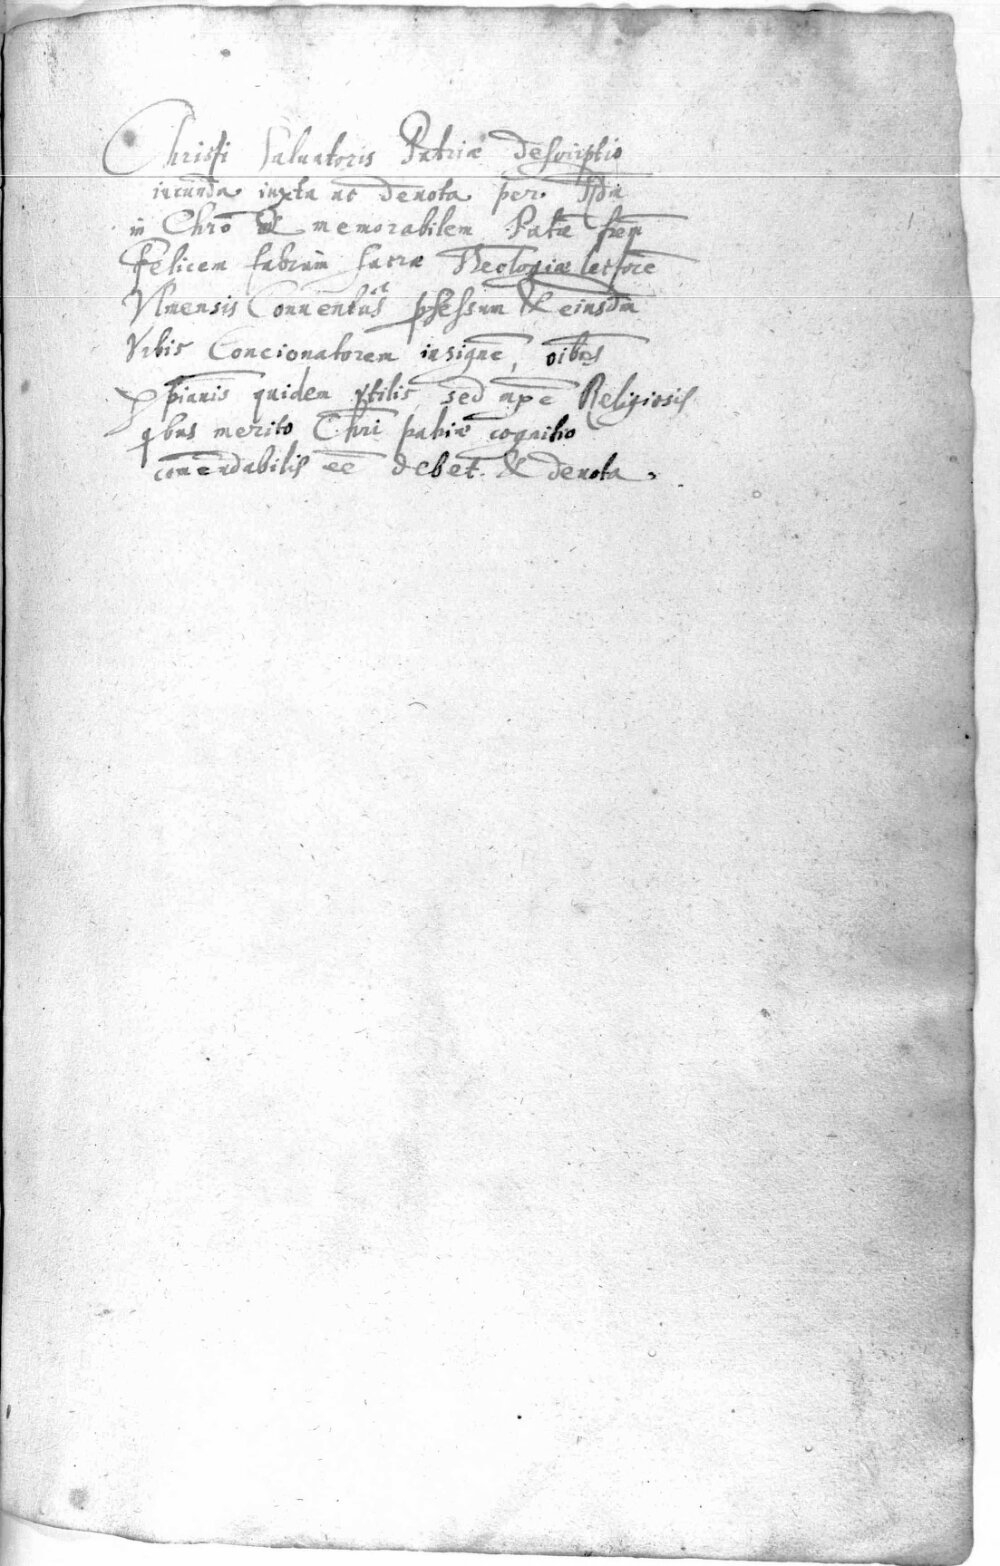 Christi Saluatoris Patriæ descriptio
iucunda iuxta ac deuota per
in Chrō & memorabilem Patrē frēm
Felicem fabrum sacræ Theologiæ lectorē
Vlmensis Conuentus ꝓfessum & eiusdm
Vrbis Concionatorem insignē, oibus
quidem vtilis sed Religiosis
qbus merito Chri patriæ cognitio
comendabilis eē debet & deuota.